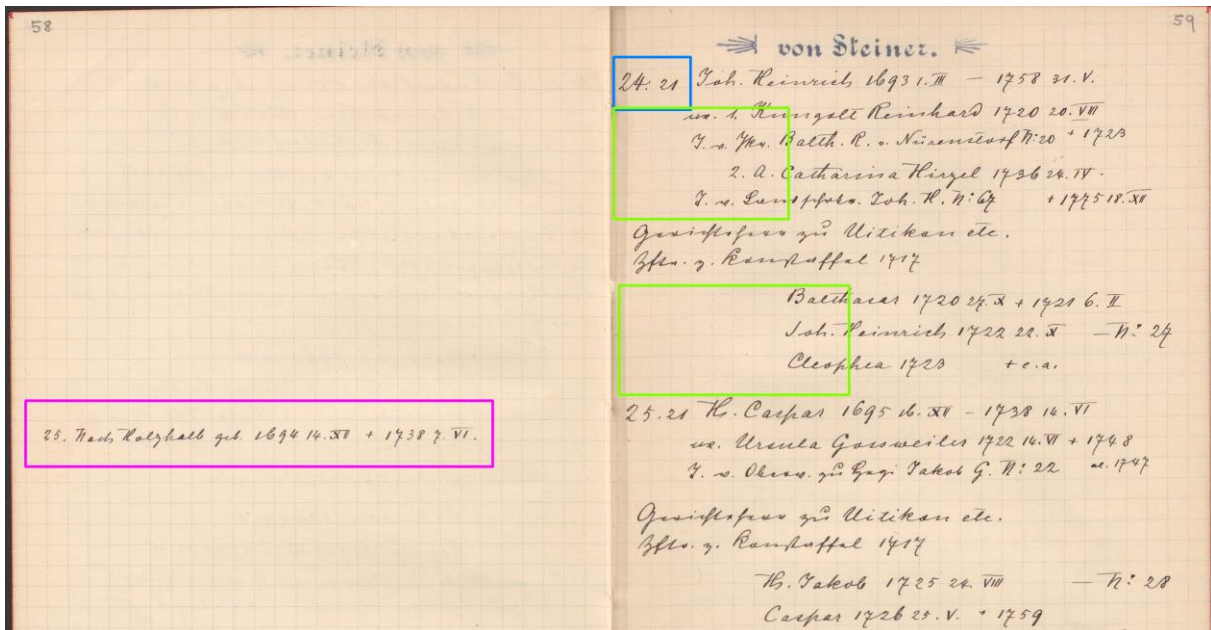 58
25. Nach Holzhalb geb. 1694 14. XII + 1738 7. VI.
59
von Steiner.
24. 21 Joh. Heinrich 1693 1. III — 1758 31. V.
ux. 1. Küngolt Reinhard 1720 20. VIII
T. v. Jkr. Balth. R. v. Nürenstorf N: 20 + 1723
2. A. Catharina Hirzel 1736 24. IV.
T. v. Landschrbr. Joh. H. N: 67 + 1775 18. XII
Gerichtsherr zu Uitikon etc.
Zftr. z. Konstaffel 1717
Balthasar 1720 27. X + 1721 6. II
Joh. Heinrich 1722 22. X — N: 27
Cleophea 1723 + e. a.
25. 21 Hs. Caspar 1695 16. XII - 1738 14. VI
ux. Ursula Gossweiler 1722 14. VI + 1748
T. v. Obervv. zu Hegi Jakob G. N: 22 al. 1747
Gerichtsherr zu Uitikon etc.
Zftr. z. Konstaffel 1717
Hs. Jakob 1725 24. VIII — N: 28
Caspar 1726 25. V. + 1759